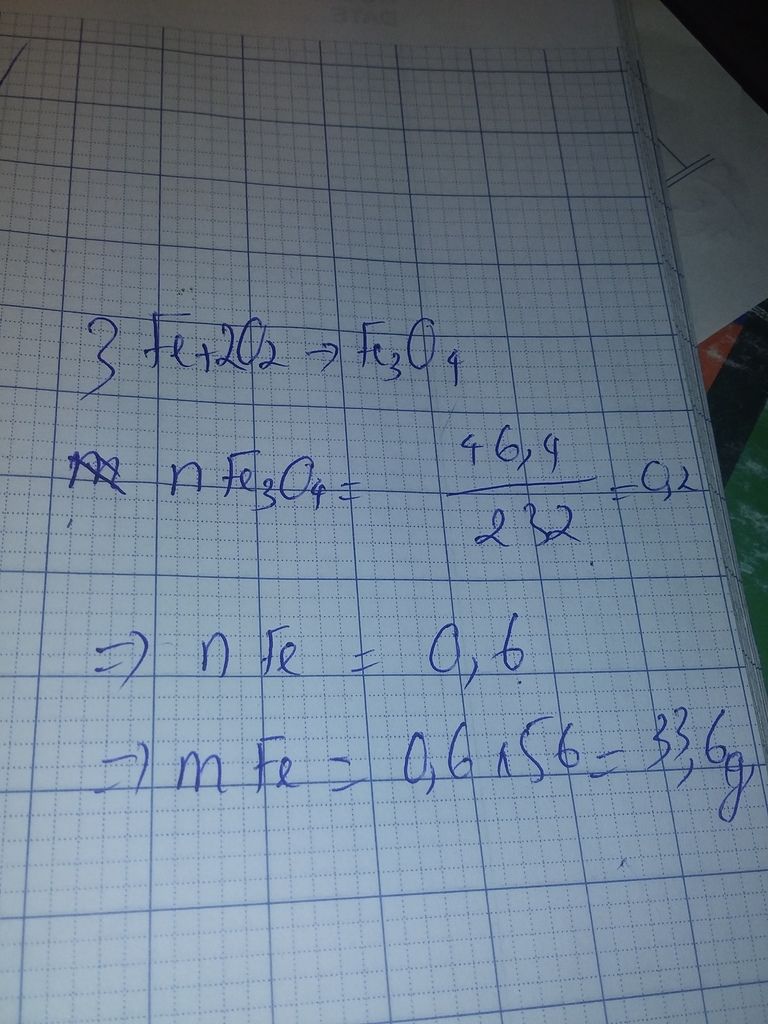 3 Fe+2O2 → Fe3O4
m n Fe3O4 = 46,4/232 = 0,2
=> n Fe = 0,6
=> m Fe = 0,6 x 56 = 33,6g